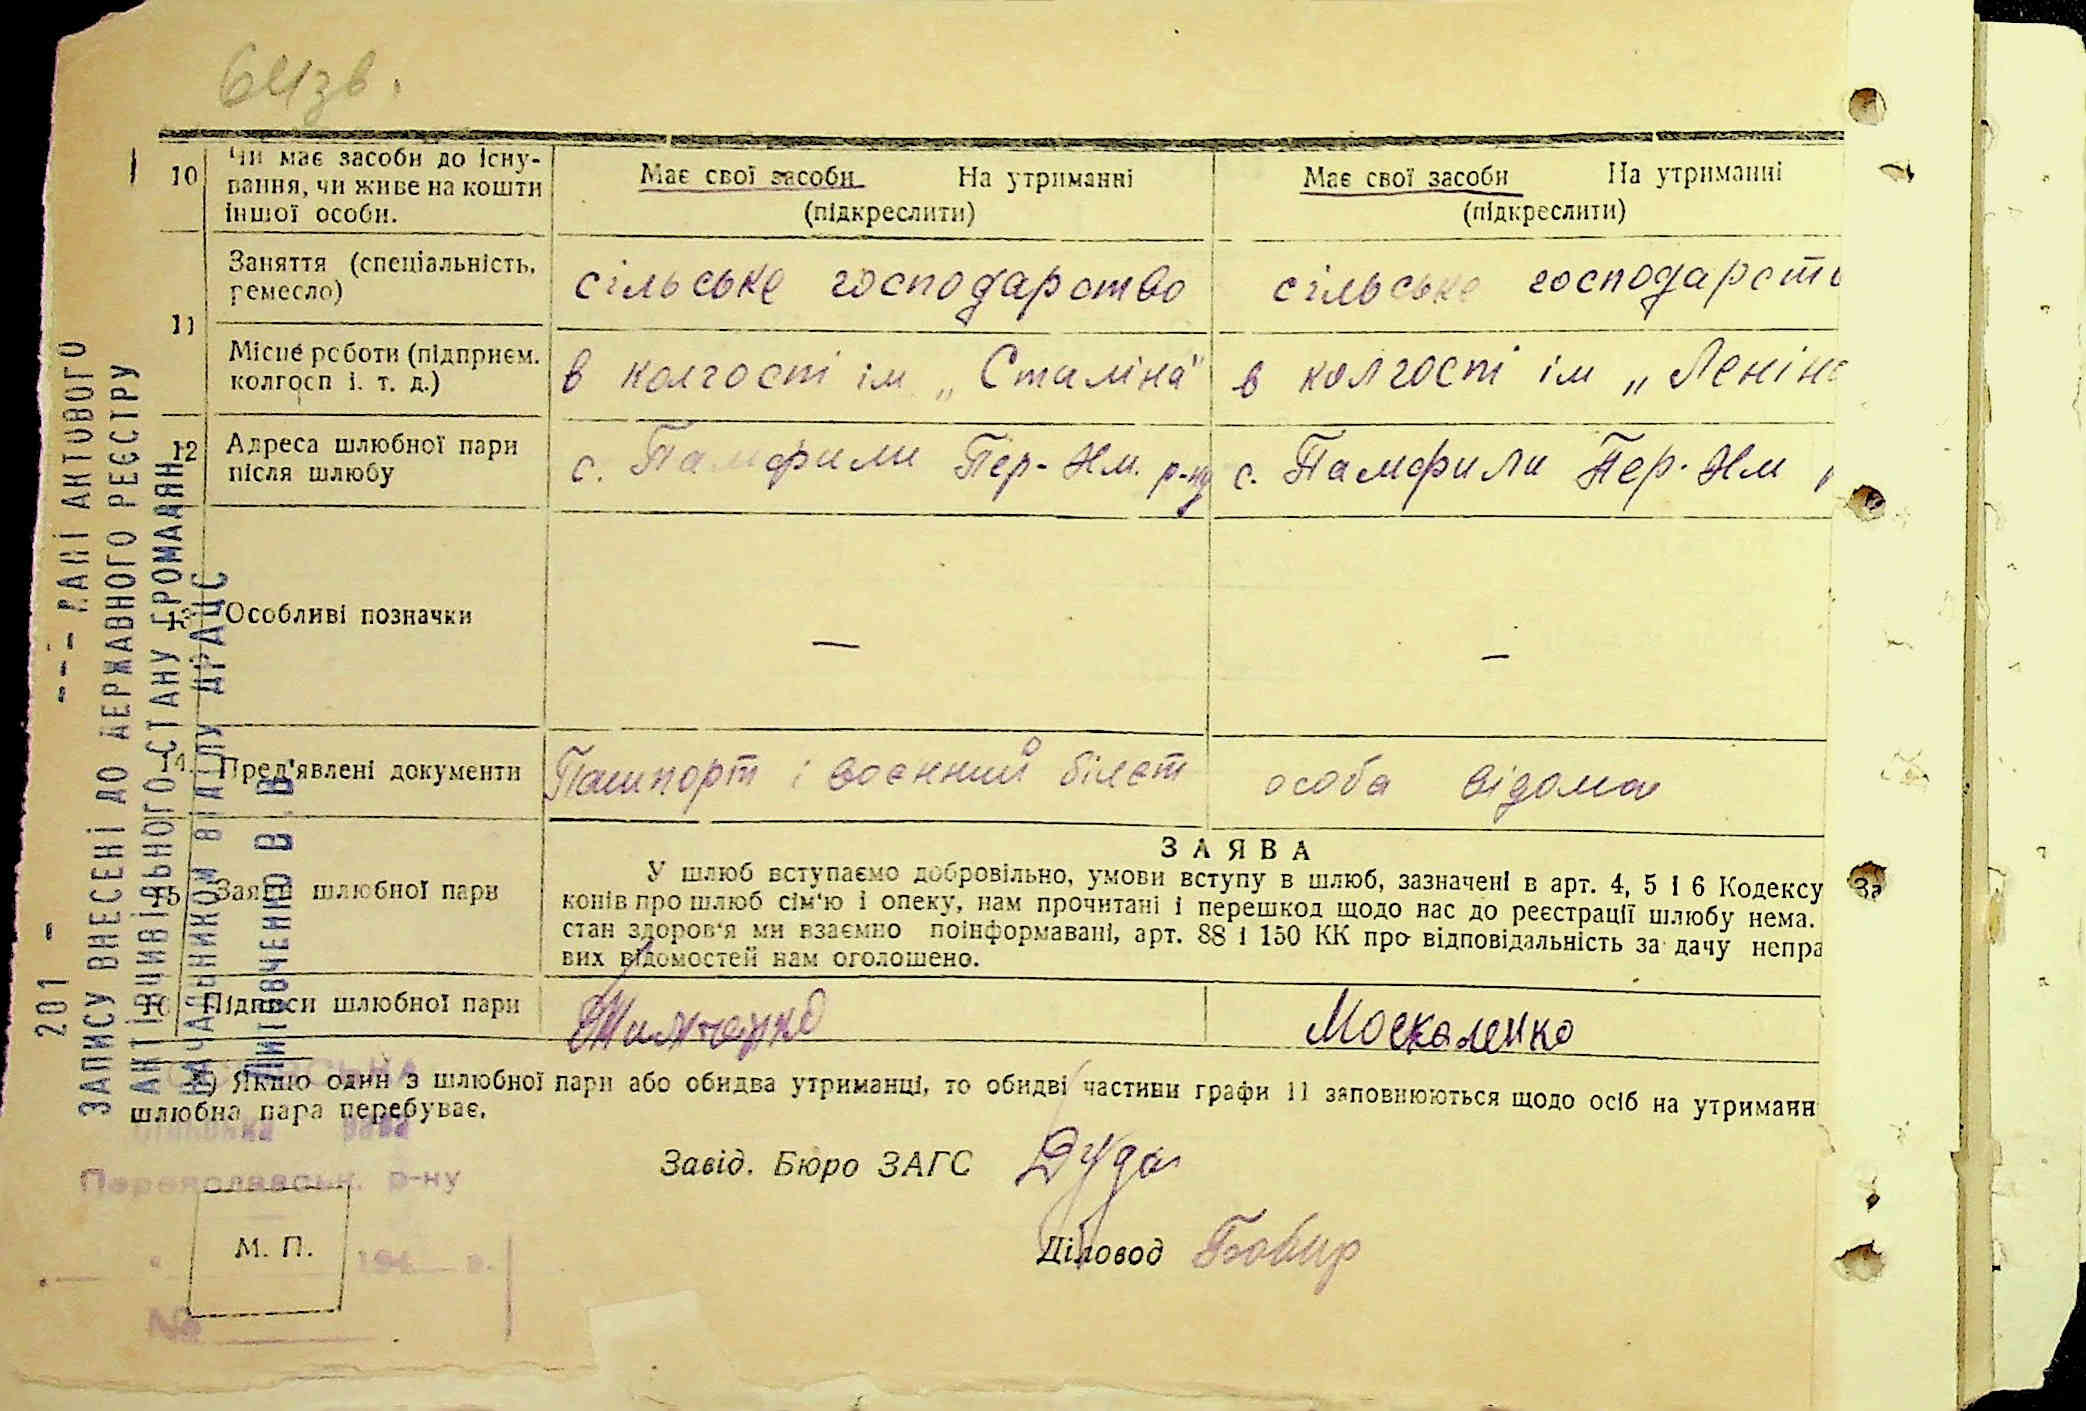 10 Чи має засоби до існу-
вання, чи живе на кошти
іншої особи.
Має свої засоби На утриманні
(підкреслити)
Має свої засоби На утриманні
(підкреслити)
11 Заняття (спеціальність,
ремесло)
сільське господарство
сільське господарств
Місце роботи (підприєм.
колгосп і. т. д.)
в колгості ім „Сталіна"
в колгості ім „Леніна
12 Адреса шлюбної пари
після шлюбу
с. Памфили Пер-Хм. р-ну
с. Памфили Пер-Хм
13 Особливі позначки
—
—
14. Пред'явлені документи
Пашпорт і воєнний білєт
особа відома
15 Заява шлюбної пари
ЗАЯВА
У шлюб вступаємо добровільно, умови вступу в шлюб, зазначені в арт. 4, 5 і 6 Кодексу За
конів про шлюб сім'ю і опеку, нам прочитані і перешкод щодо нас до реєстрації шлюбу нема.
стан здоров'я ми взаємно поінформавані, арт. 88 і 150 КК про відповідальність за дачу непра
вих відомостей нам оголошено.
16 Підписи шлюбної пари
Москаленко
*) Якщо один з шлюбної пари або обидва утриманці, то обидві частини графи 11 заповнюються щодо осіб на утриманн
шлюбна пара перебуває.
Завід. Бюро ЗАГС Дуда
Діловод
М. П.
Переяславськ. р-ну
194 р.
№
201 -
АНІ АКТОВОГО
ЗАПИСУ ВНЕСЕНІ ДО ДЕРЖАВНОГО РЕЄСТРУ
АКТІВ ЦИВІЛЬНОГО СТАНУ ГРОМАДЯН
НАЧАЛЬНИКОМ ВІДДІЛУ ДРАЦС
Литовченко В.В.